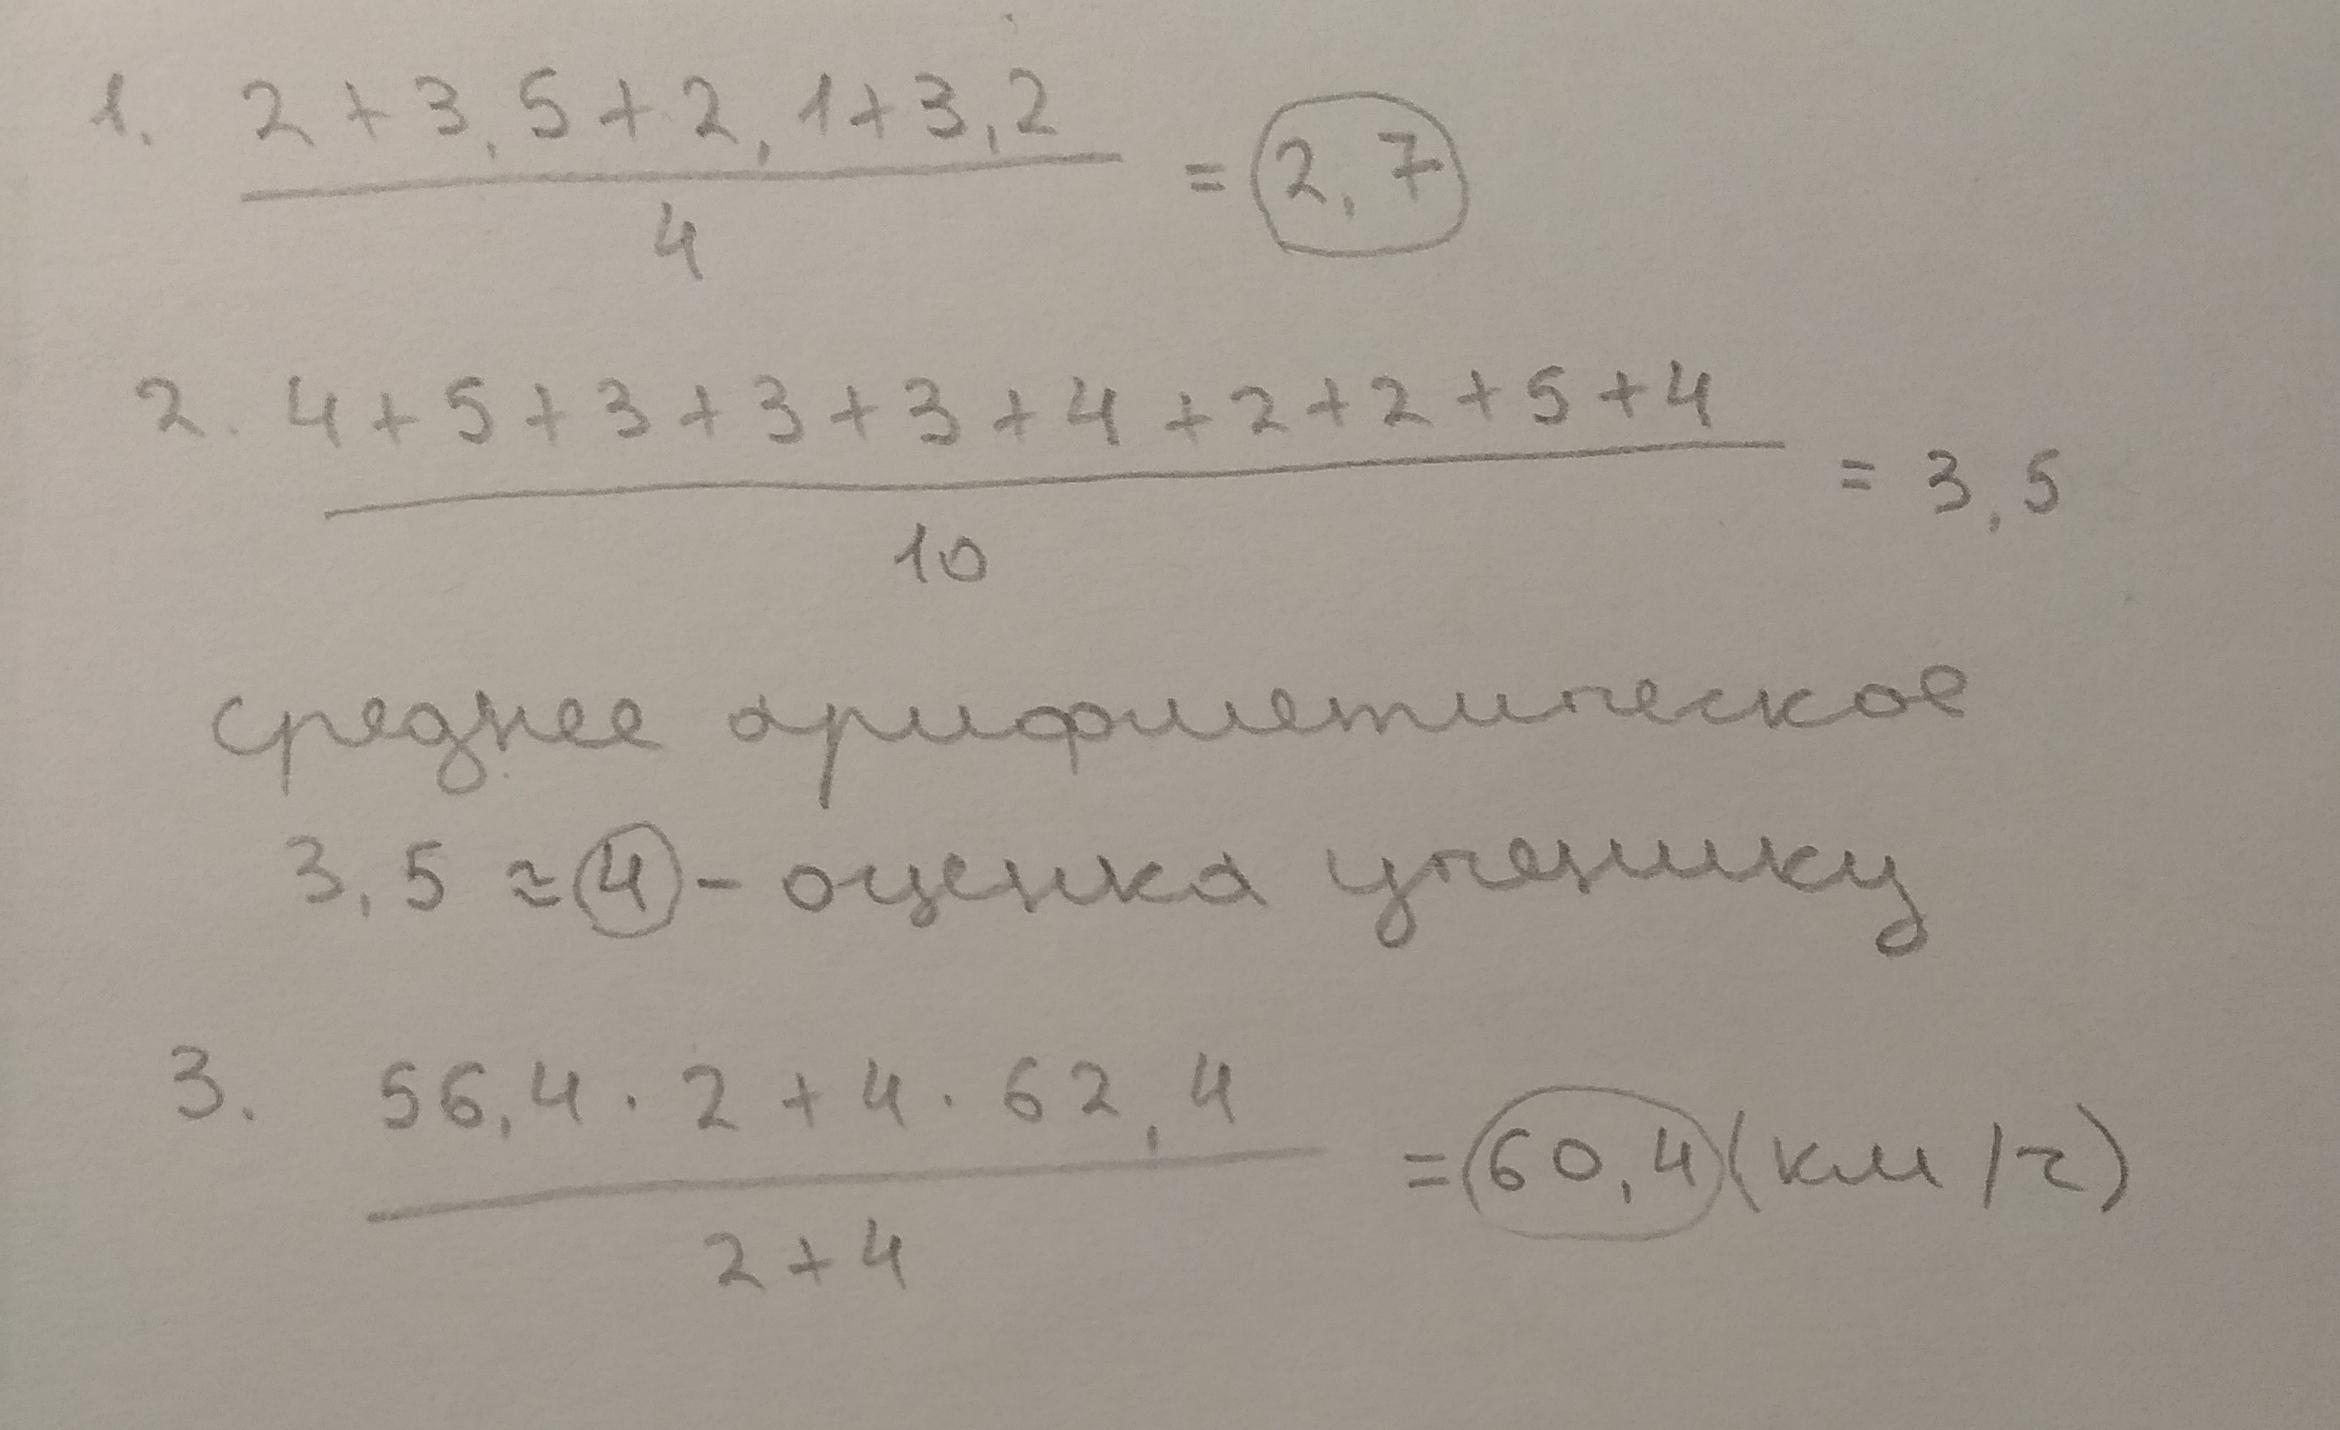 1. (2 + 3,5 + 2,1 + 3,2) / 4 = 2,7
2. (4 + 5 + 3 + 3 + 3 + 4 + 2 + 2 + 5 + 4) / 10 = 3,5
среднее арифметическое
3,5 ≈ 4 - оценка ученику
3. (56,4 · 2 + 4 · 62,4) / (2 + 4) = 60,4 (км/ч)